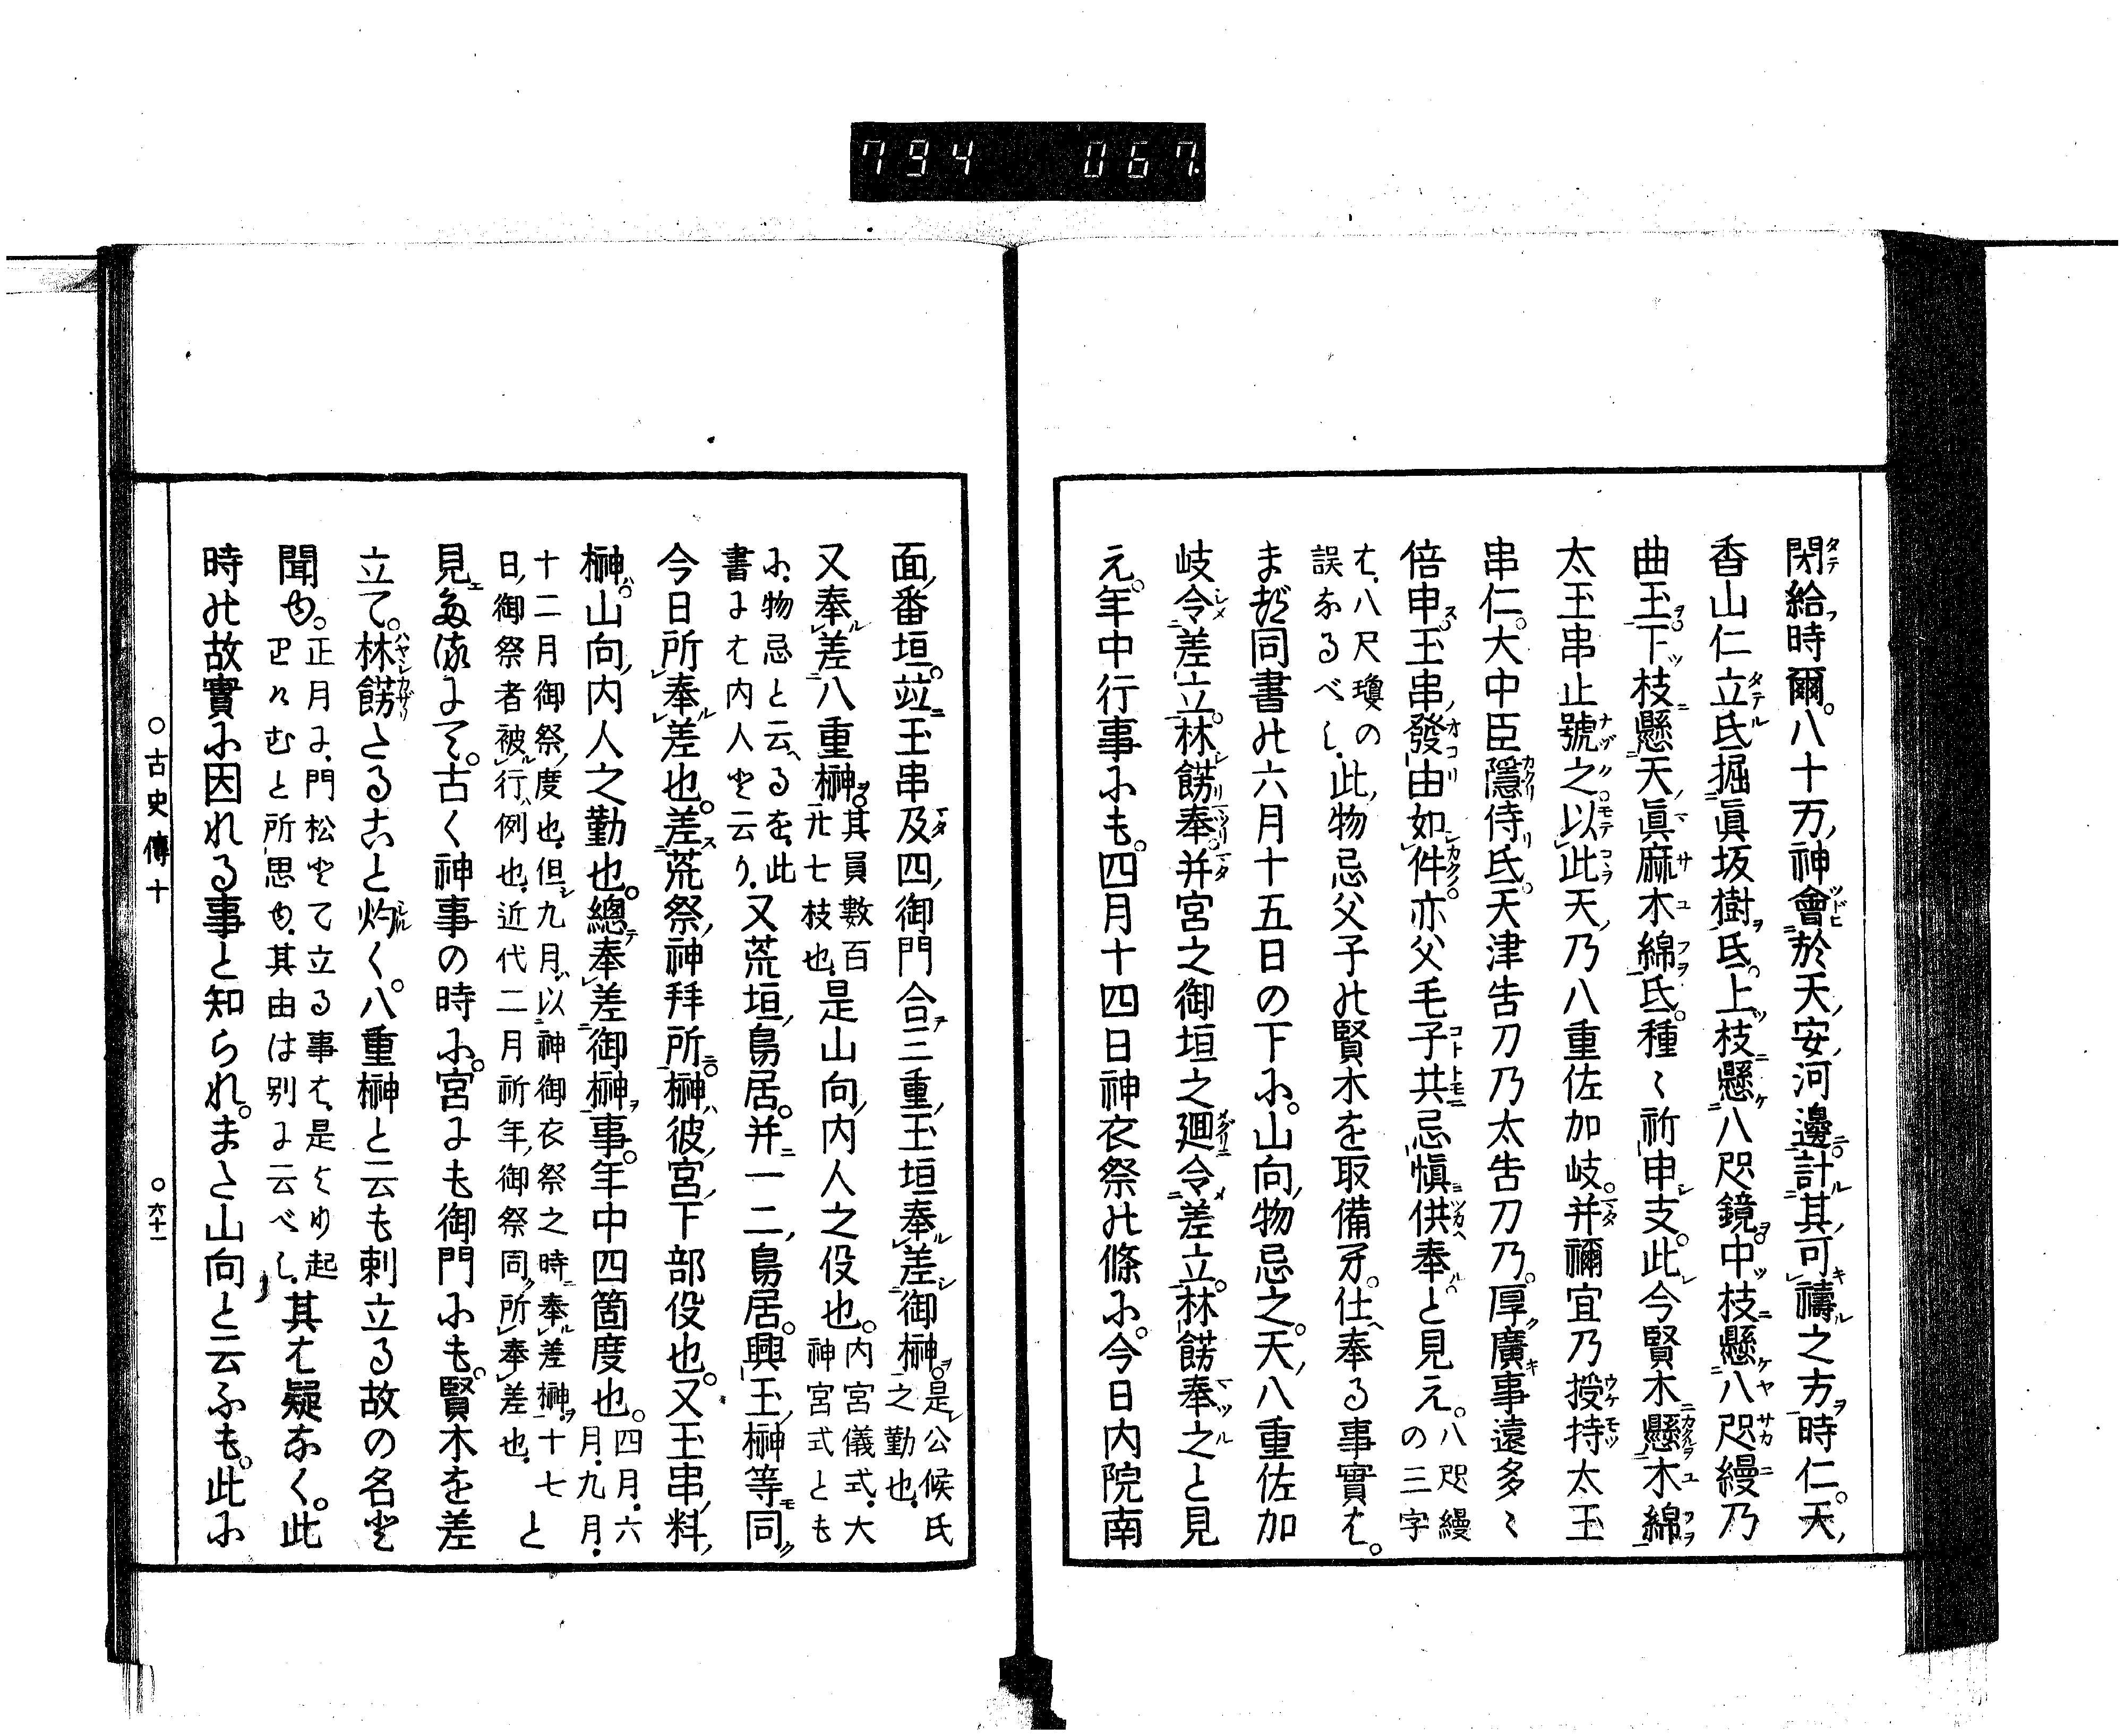 794 067.
閇給時爾。八十万神會於天安河邊計其可禱之方時仁。天
香山仁立氐掘眞坂樹氐。上枝懸八咫鏡。中枝懸八咫縵乃
曲玉。下枝懸天眞麻木綿氐。種〻祈申支。此今賢木懸木綿
太玉串止號之。以此天乃八重佐加岐。并禰宜乃授持太玉
串仁。大中臣隱侍氐。天津告刀乃太告刀乃。厚廣事遠多〻
倍申。玉串發由如件。亦父毛子共忌愼供奉と見え。八咫縵の三字
は、八尺瓊の誤なるべし。此物忌父子の賢木を取備弖。仕奉る事實は。
また同書の六月十五日の下に。山向物忌之。天八重佐加
岐令差立。林餝奉。并宮之御垣之廻令差立。林餝奉之と見
え。年中行事にも。四月十四日神衣祭の條に。今日内院南
面、番垣。竝玉串及四御門合三重、玉垣奉差御榊。是公候氏之勤也。
又奉差八重榊。其員數百卅七枝也。是山向内人之役也。内宮儀式、大神宮式とも
に、物忌と云へるを、此書には内人と云り。又荒垣、鳥居。并一二、鳥居。興玉、榊等同
今日所奉差也。差荒祭、神拜所、榊、彼宮、下部役也。又玉串、料、
榊。山向、内人之勤也。總奉差御榊事。年中四箇度也。四月、六月、九月、
十二月御祭、度也、但九月、以神御衣祭之時奉差榊、十七日、御祭者被行例也、近代二月祈年、御祭同所奉差也、と
見えたるにて。古く神事の時に。宮にも御門にも。賢木を差
立て。林餝たること灼く。八重榊と云も剌立る故の名と
聞ゆ。正月に、門松とて立る事は、是より起れらむと所思ゆ、其由は別に云べし、其は疑なく。此
時の故實に因れる事と知られ。また山向と云ふも。此に
○古史傳十 ○六十一